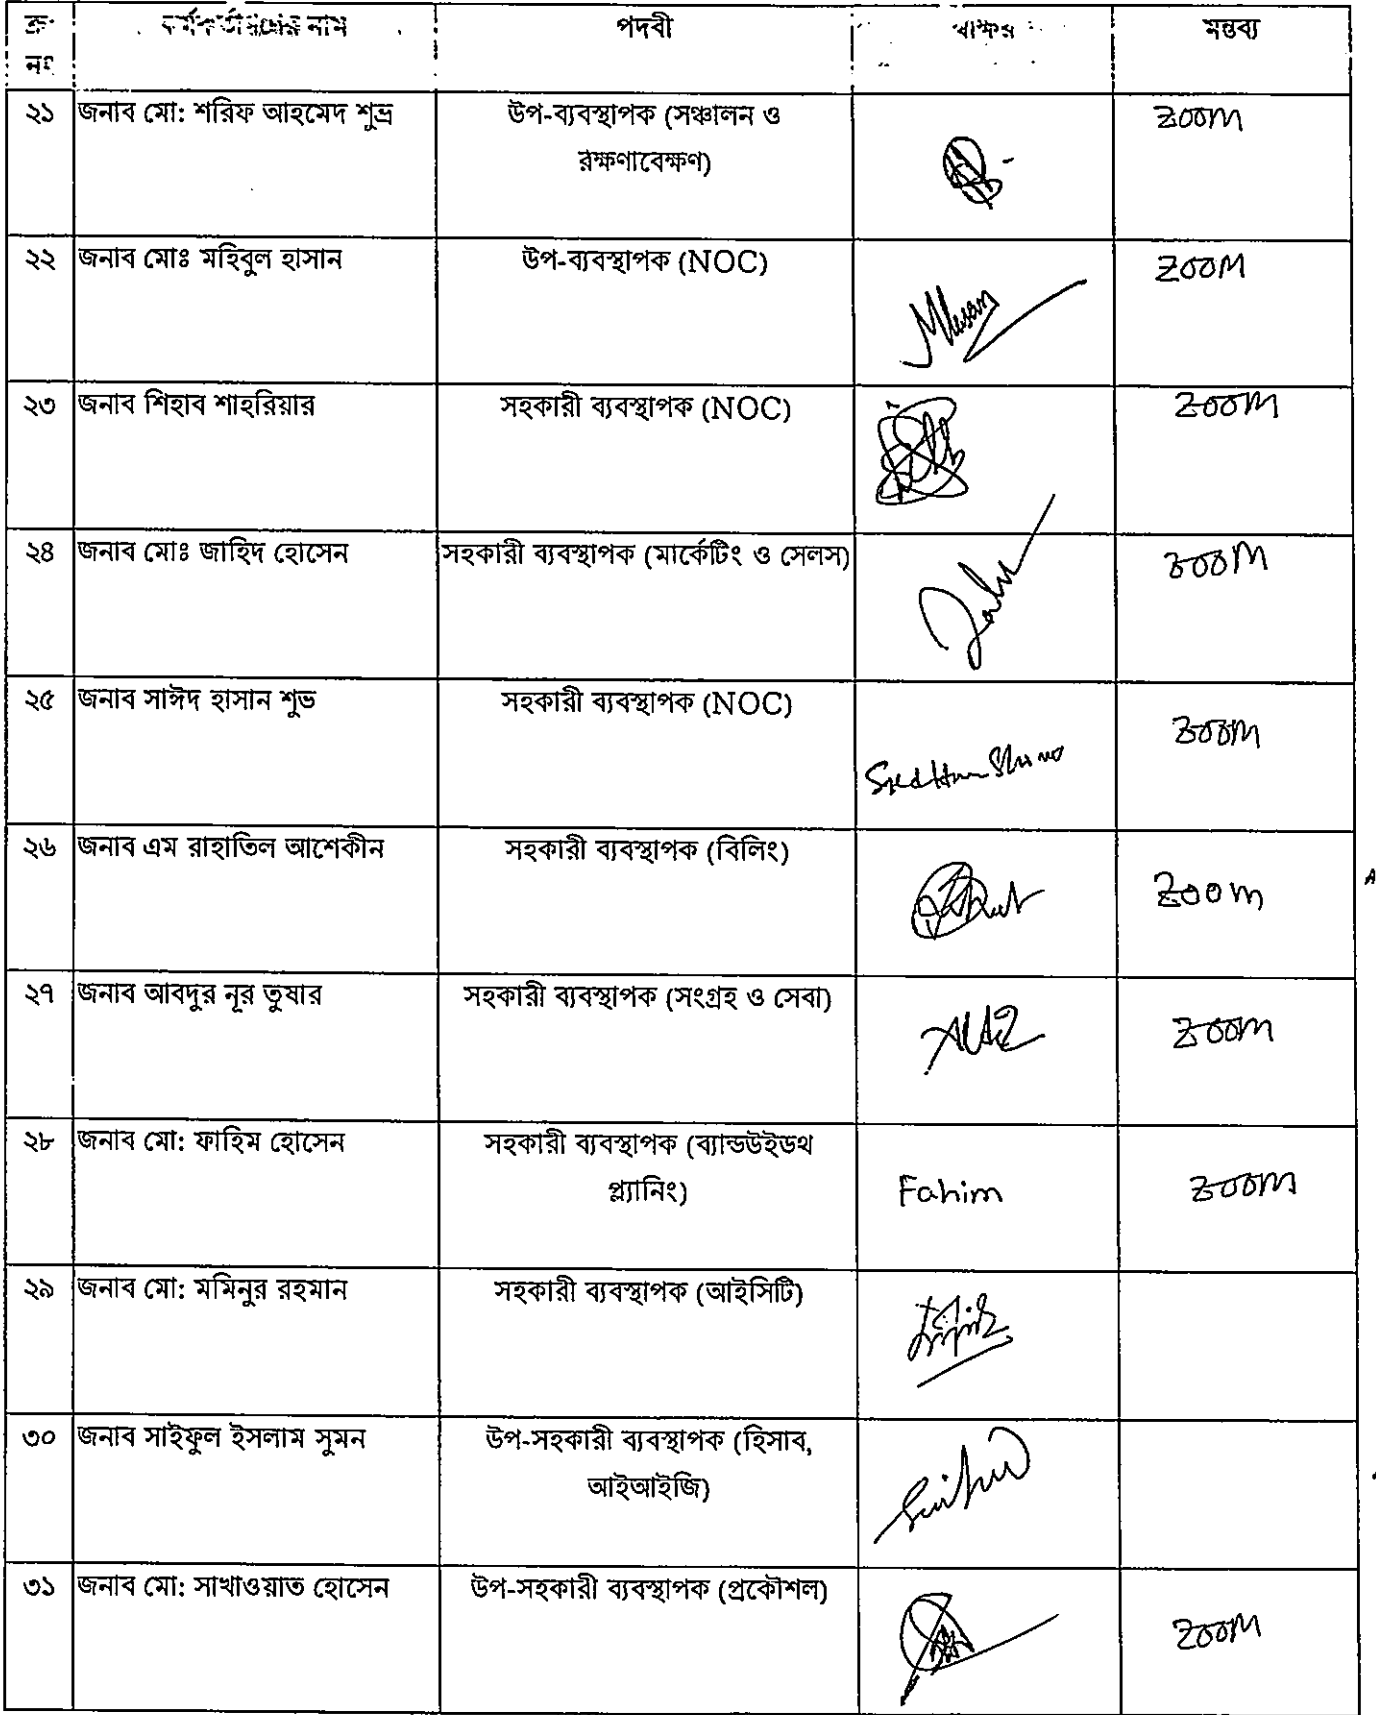 ক্র: কর্মকর্তাগণের নাম পদবী স্বাক্ষর মন্তব্য
নং
২১ জনাব মো: শরিফ আহমেদ শুভ্র উপ-ব্যবস্থাপক (সঞ্চালন ও zoom
রক্ষণাবেক্ষণ)
২২ জনাব মোঃ মহিবুল হাসান উপ-ব্যবস্থাপক (NOC) zoom
২৩ জনাব শিহাব শাহরিয়ার সহকারী ব্যবস্থাপক (NOC) zoom
২৪ জনাব মোঃ জাহিদ হোসেন সহকারী ব্যবস্থাপক (মার্কেটিং ও সেলস) zoom
২৫ জনাব সাঈদ হাসান শুভ সহকারী ব্যবস্থাপক (NOC) zoom
২৬ জনাব এম রাহাতিল আশেকীন সহকারী ব্যবস্থাপক (বিলিং) zoom
২৭ জনাব আবদুর নূর তুষার সহকারী ব্যবস্থাপক (সংগ্রহ ও সেবা) zoom
২৮ জনাব মো: ফাহিম হোসেন সহকারী ব্যবস্থাপক (ব্যান্ডউইডথ
প্ল্যানিং) Fahim zoom
২৯ জনাব মো: মমিনুর রহমান সহকারী ব্যবস্থাপক (আইসিটি)
৩০ জনাব সাইফুল ইসলাম সুমন উপ-সহকারী ব্যবস্থাপক (হিসাব,
আইআইজি)
৩১ জনাব মো: সাখাওয়াত হোসেন উপ-সহকারী ব্যবস্থাপক (প্রকৌশল) zoom